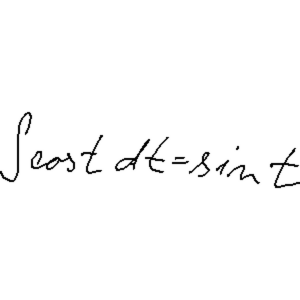 ∫cost dt = sin t